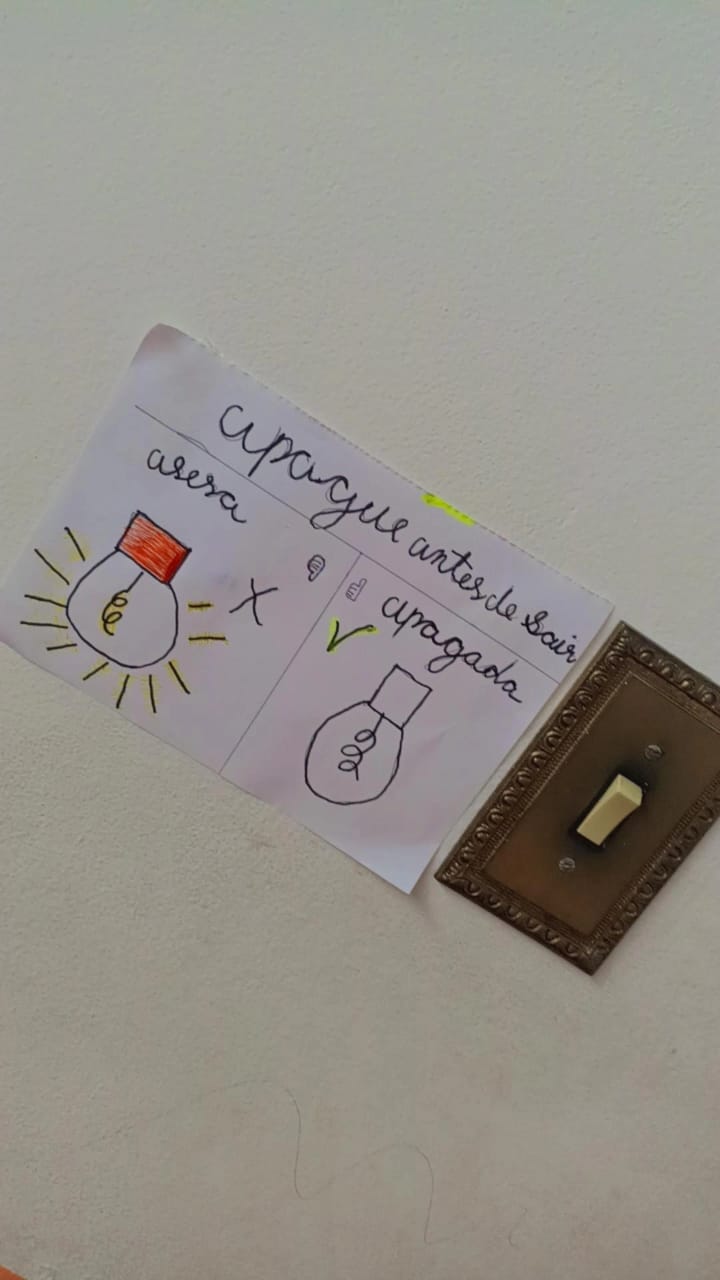 apague antes de sair
asesa
apagada